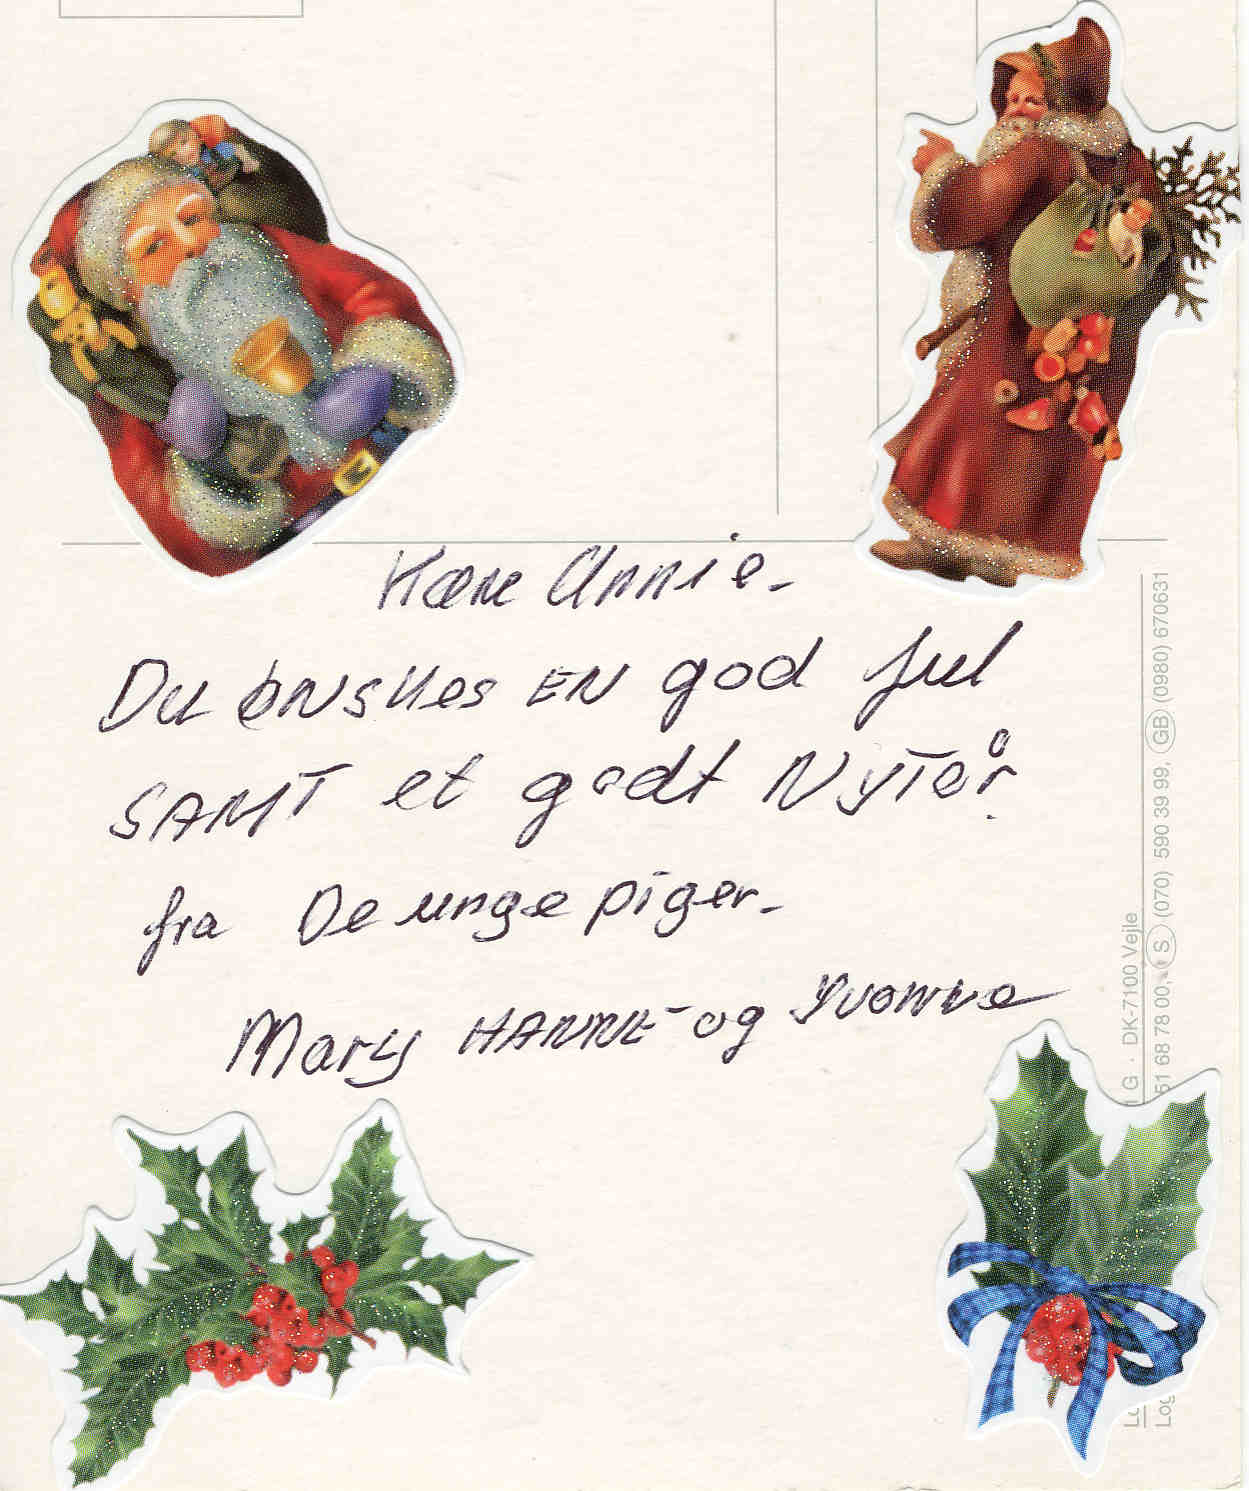 Kære Annie.
Du ønskes EN god jul
SAMT et godt Nytår.
fra De unge piger.
Mary HANNE og Yvonne
G · DK-7100 Vejle
51 68 78 00, S (070) 590 39 99, GB (0980) 670631